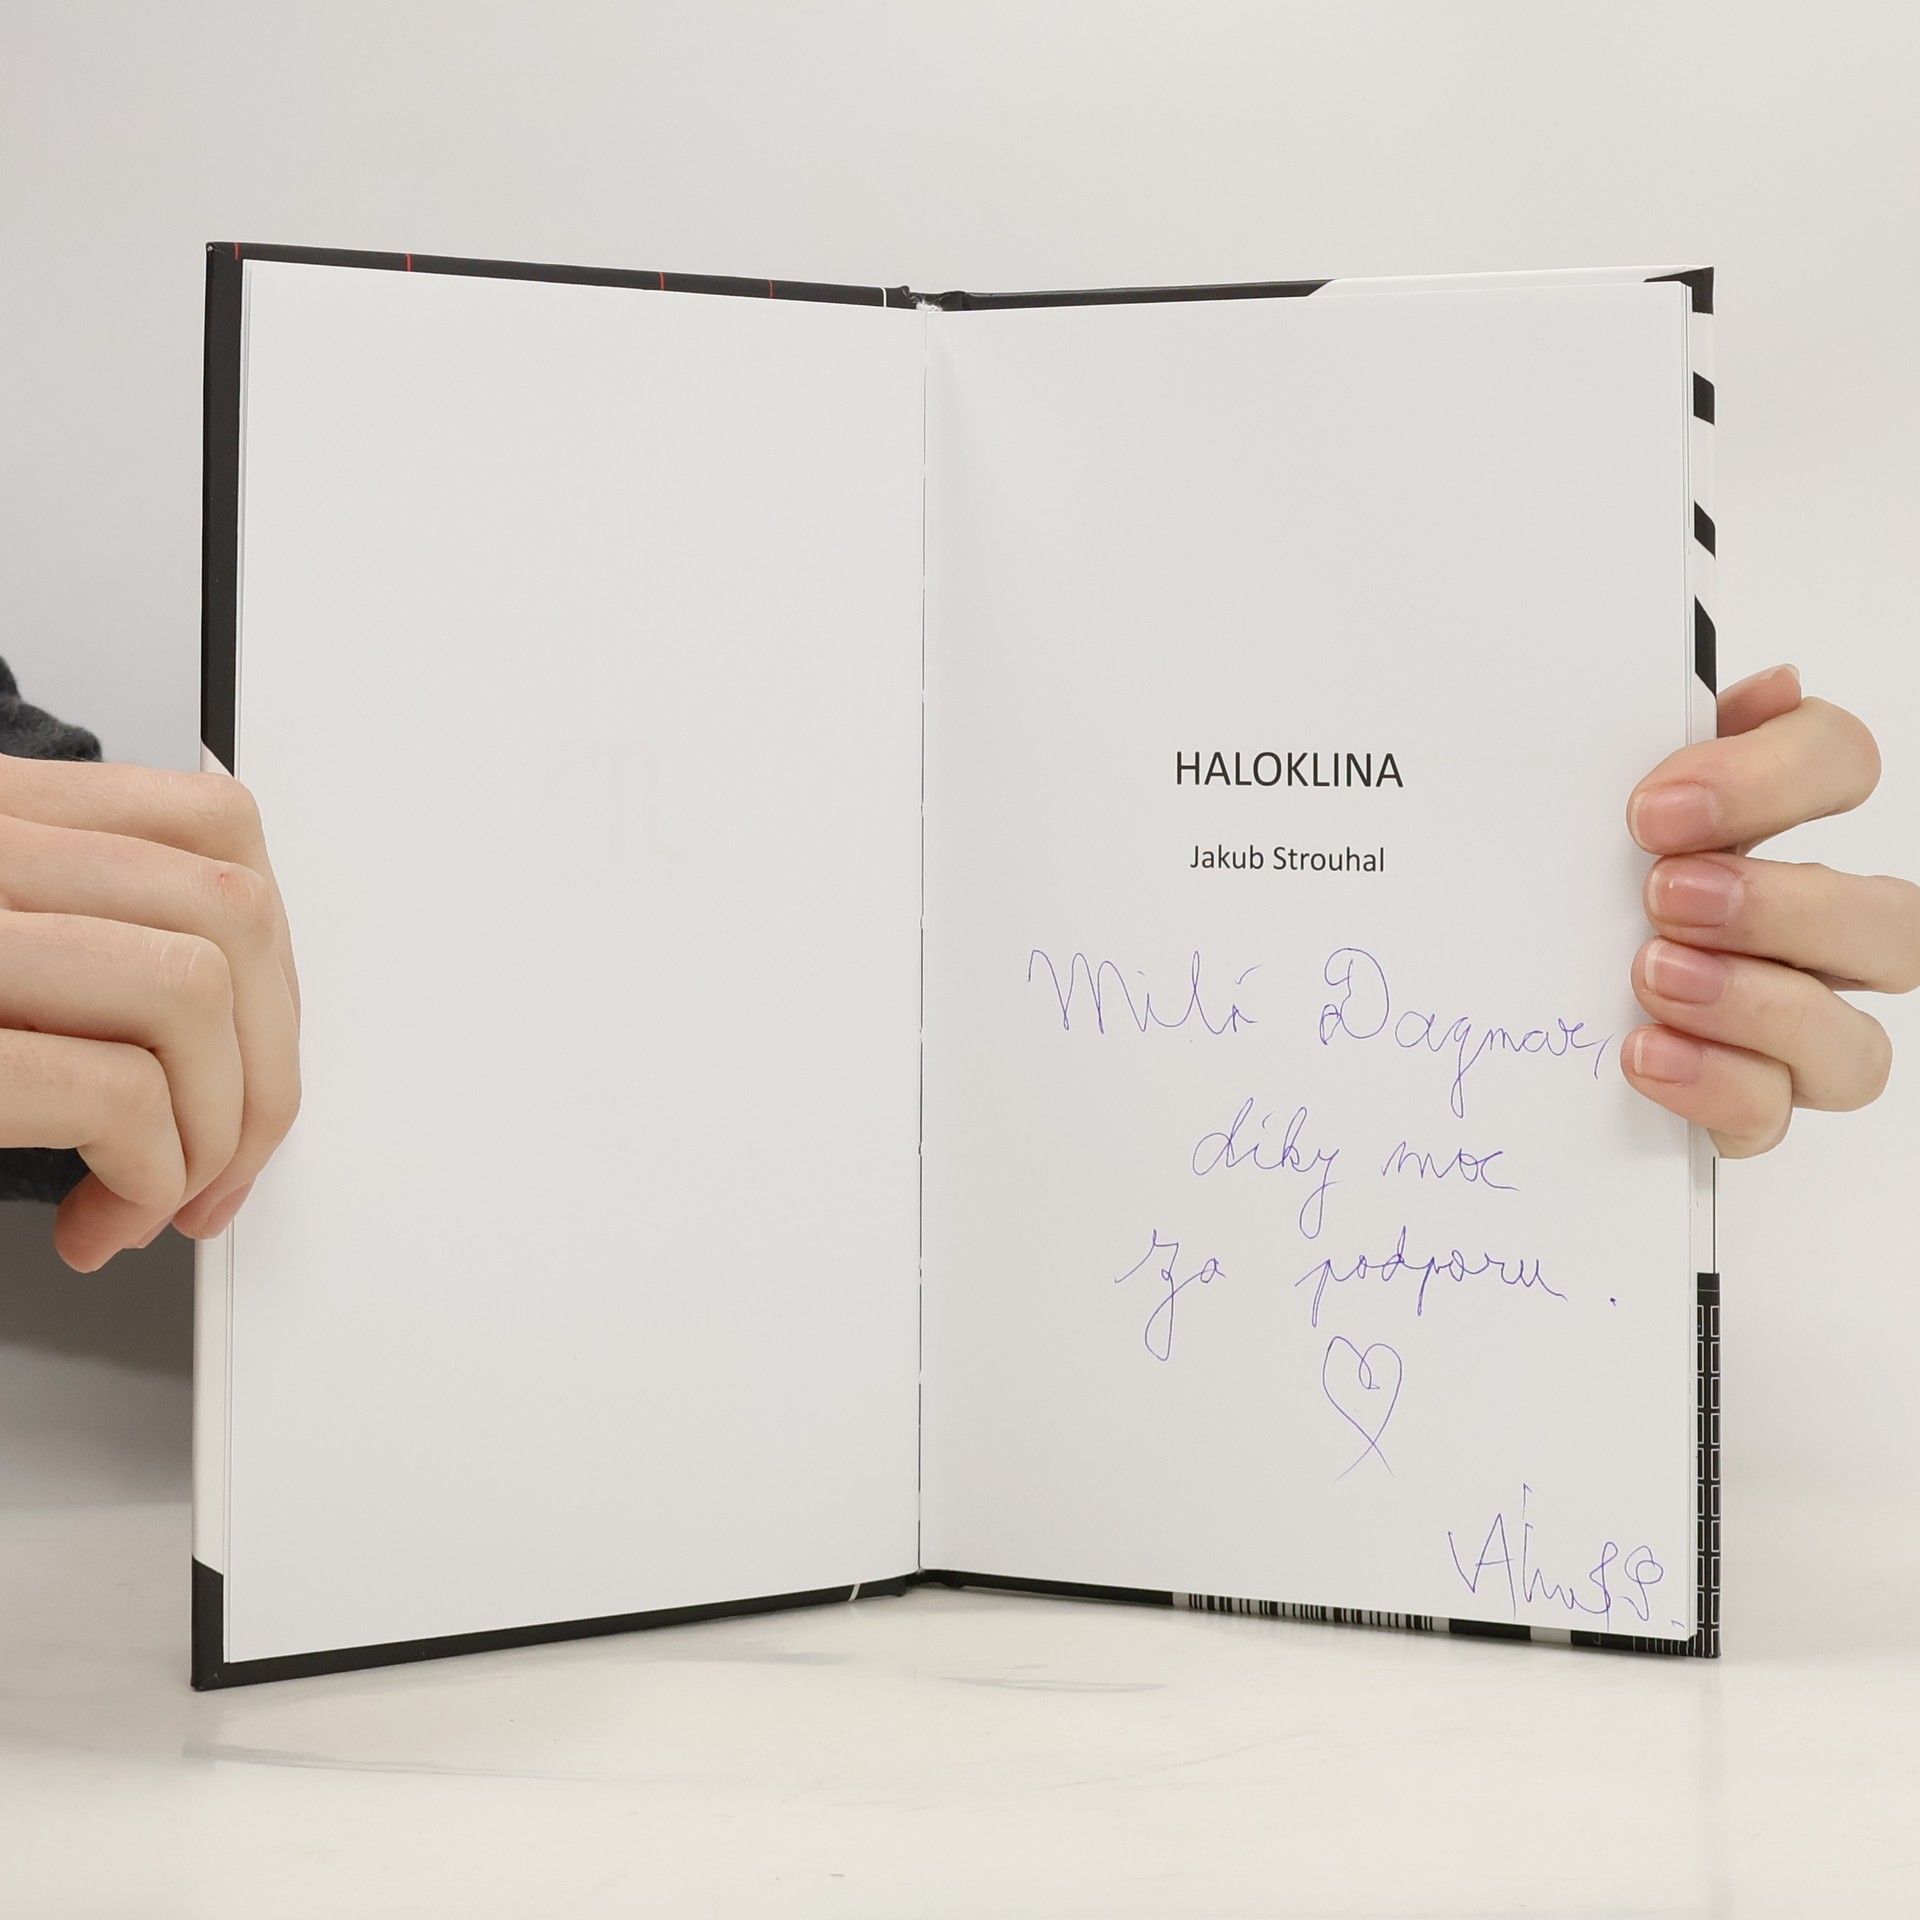 HALOKLINA
Jakub Strouhal
Milá Dagmar,
díky moc
za podporu.